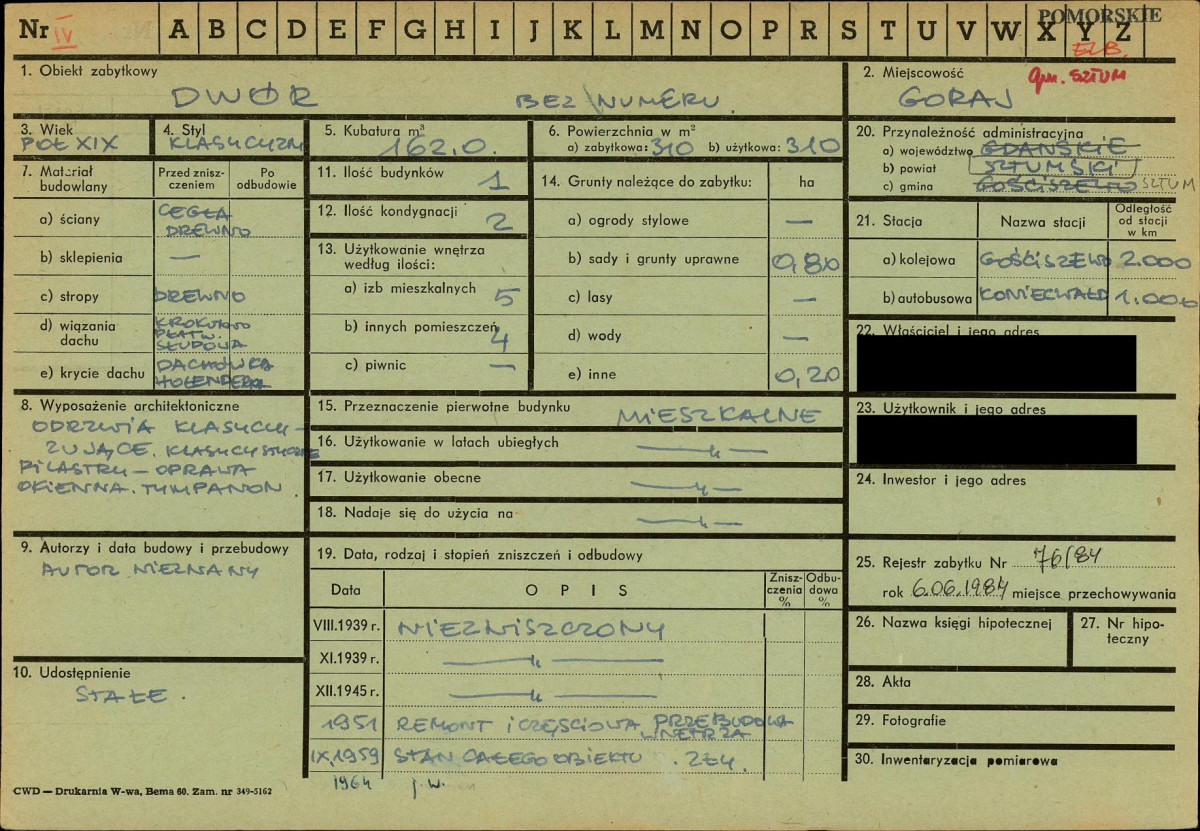 Nr IV A B C D E F G H I J K L M N O P R S T U V W X Y Z
POMORSKIE
ELB.
1. Obiekt zabytkowy
DWÓR BEZ NUMERU
2. Miejscowość
gm. SZTUM
GORAJ
3. Wiek
POŁ XIX
4. Styl
KLASYCYZM
5. Kubatura m³
162,0.
6. Powierzchnia w m²
a) zabytkowa: 310 b) użytkowa: 310
20. Przynależność administracyjna
a) województwo GDAŃSKIE
b) powiat SZTUMSKI
c) gmina GOŚCISZEWO SZTUM
7. Materiał budowlany
Przed zniszczeniem
Po odbudowie
a) ściany CEGŁA DREWNO
b) sklepienia —
c) stropy DREWNO
d) wiązania dachu KROKWIOWO PŁATW. SŁUPOWA
e) krycie dachu DACHÓWKA HOLENDERKA
11. Ilość budynków 1
12. Ilość kondygnacji 2
13. Użytkowanie wnętrza według ilości:
a) izb mieszkalnych 5
b) innych pomieszczeń 4
c) piwnic —
14. Grunty należące do zabytku: ha
a) ogrody stylowe —
b) sady i grunty uprawne 0,80
c) lasy —
d) wody —
e) inne 0,20
21. Stacja
Nazwa stacji
Odległość od stacji w km
a) kolejowa GOŚCISZEWO 2.000
b) autobusowa KONIECWAŁD 1.000
22. Właściciel i jego adres
23. Użytkownik i jego adres
8. Wyposażenie architektoniczne
ODRZWIA KLASYCY-
ZUJĄCE. KLASYCYSTYCZNE
PILASTRY – OPRAWA
OKIENNA. TYMPANON.
15. Przeznaczenie pierwotne budynku MIESZKALNE
16. Użytkowanie w latach ubiegłych —„—
17. Użytkowanie obecne —„—
18. Nadaje się do użycia na —„—
24. Inwestor i jego adres
9. Autorzy i data budowy i przebudowy
AUTOR NIEZNANY
10. Udostępnienie
STAŁE.
19. Data, rodzaj i stopień zniszczeń i odbudowy
Data
OPIS
Zniszczenia %
Odbudowa %
VIII.1939 r. NIEZNISZCZONY
XI.1939 r. —„—
XII.1945 r. —„—
1951 REMONT I CZĘŚCIOWA PRZEBUDOWA WNĘTRZA
IX,1959 STAN CAŁEGO OBIEKTU . ZŁY.
1964 j.w.
25. Rejestr zabytku Nr 76/84
rok 6.06.1984 miejsce przechowywania
26. Nazwa księgi hipotecznej
27. Nr hipoteczny
28. Akta
29. Fotografie
30. Inwentaryzacja pomiarowa
CWD — Drukarnia W-wa, Bema 60. Zam. nr 349-5162